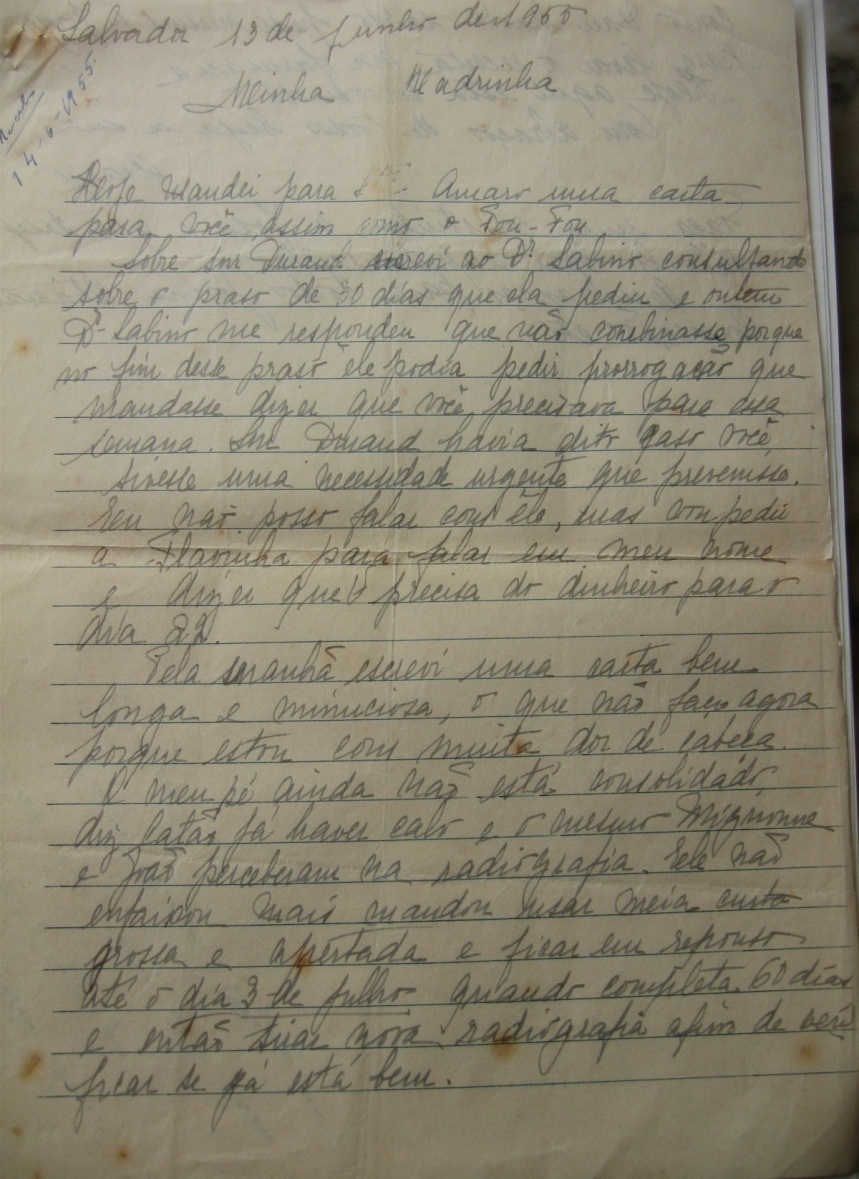 Salvador 13 de Junho de 1955
14-6-1955.
Minha Madrinha
Hoje mandei para Sto Amaro uma carta
para você assim como o Fou-Fou
Sobre snr Durand escrevi ao Dr Sabino consultando
sobre o praso de 30 dias que ela pediu e ontem
Dr Sabino me respondeu que não combinasse porque
no fim deste praso êle podia pedir prorrogação que
mandasse dizer que você precisava para essa
semana. Snr Durand havia dito caso você
tivesse uma necessidade urgente que prevenisse.
Eu não posso falar com êle, mas vou pedir
a Flavinha para falar em meu nome
e dizer que precisa do dinheiro para o
dia 22.
Pela manhã escrevi uma carta bem
longa e minuciosa, o que não faço agora
porque estou com muita dor de cabeça.
O meu pé ainda não está consolidado,
diz Catão já haver calo e o mesmo Mignonne
e João perceberam na radiografia. Ele não
enfaixou mais mandou usar meia curta
grossa e apertada e ficar em repouso
até o dia 3 de julho quando completa 60 dias
e então tirar nova radiografia afim de veri
ficar se já está bem.